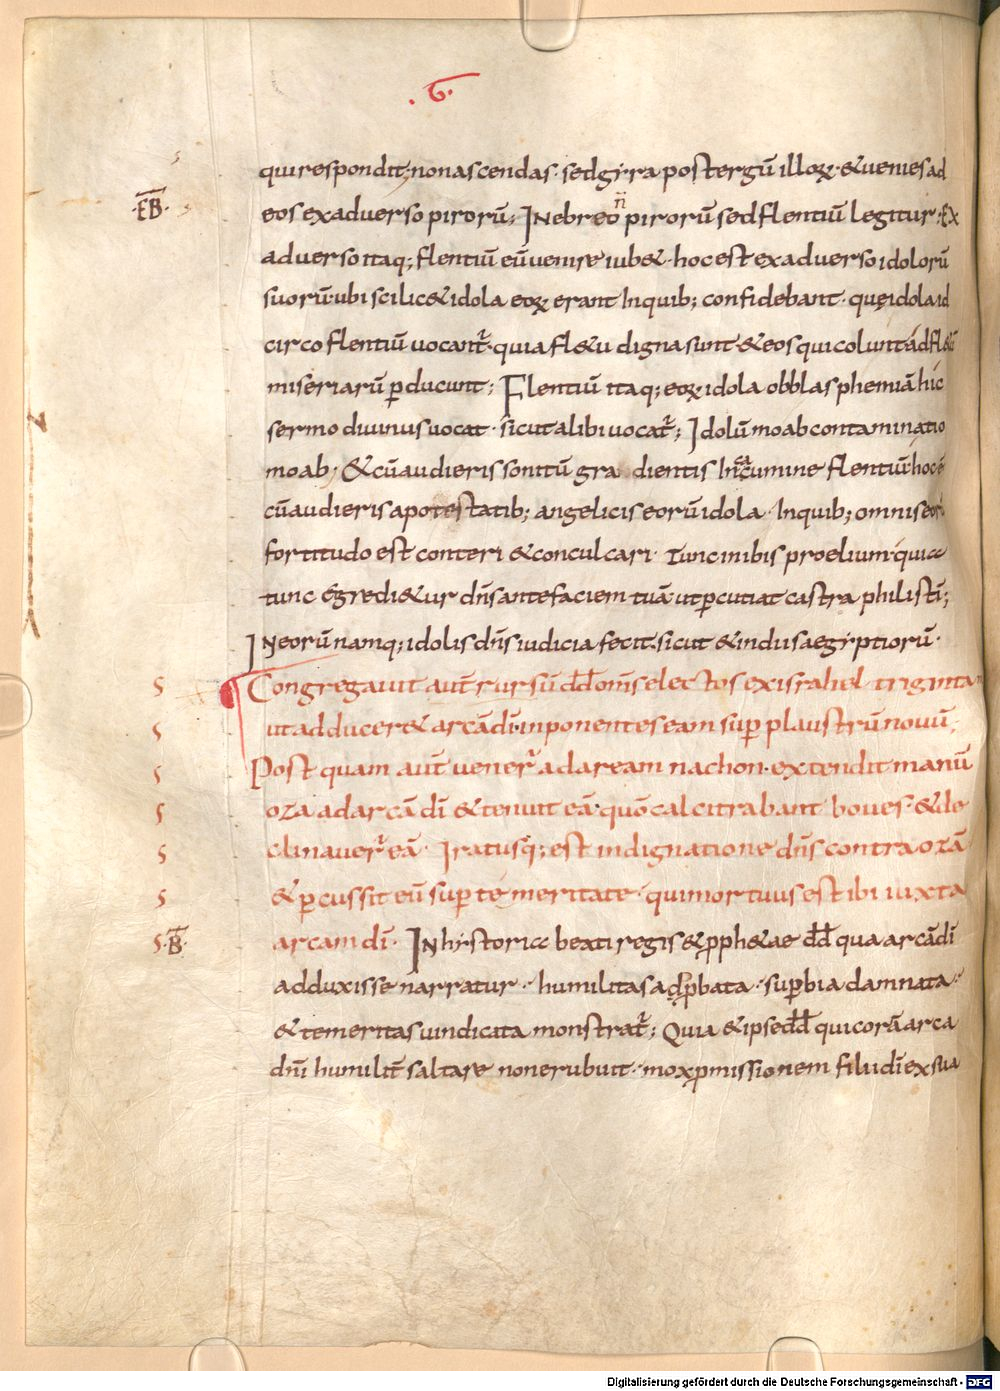 .G.
qui respondit; non ascendas· sed gyra post ergū illoꝝ· & uenies ad
·EB· eos ex aduerso pirorū; IN ebreo n̄ pirorū sed flentiū legitur· Ex
aduerso itaq; flentiū eū uenire iub&· hoc est ex aduerso idolorū
suorū· ubi scilic& idola eoꝝ erant Inquib; confidebant· quę idola id
circo flentiū uocant᷑· quia fl&u digna sunt· & eos qui colunt ad fl&ū
miseriarū ꝑducunt; Flentiū itaq; eoꝝ idola ob blasphemiā hic
sermo diuinus uocat· sicut alibi uocat᷑; Idolū moab contaminatio
moab· & cū audieris sonitū gra dientis In cacumine flentiū· hoc ē
cū audieris a potestatib; angelicis eorū idola· Inquib; omnis eorū
fortitudo est conteri & conculcari· Tunc inibis proelium· quia
tunc egredi&ur dn̄s ante faciem tuā ut ꝑcutiat castra philistī;
IN eorū namq; idolis dn̄s iudicia fecit· sicut & in diis aegyptiorū·
S Congregauit aut̄ rursū dd̄ om̄s electos ex israhel triginta m
S ut adducer& arcā dī· inponentes eam suꝑ plaustrū nouū;
S Post quam aut̄ uener᷑ ad aream nachon· extendit manū
S oza ad arcā dī & tenuit eā· quō calcitrabant boues· & de
S clinauer᷑ eā· Iratusq; est indignatione dn̄s contra ozā
S & ꝑcussit eū suꝑ temeritate· qui mortuus est ibi iuxta
S·B̄· arcam dī· IN hystoria beati regis & ꝓph&ae dd̄ qua arcā dī
adduxisse narratur· humilitas adꝓbata· suꝑbia damnata·
& temeritas uindicata monstrat᷑; Quia & ipse dd̄ qui corā arca
dn̄i humilit̄ saltare non erubuit· mox ꝓmissionem filii dī ex sua
Digitalisierung gefördert durch die Deutsche Forschungsgemeinschaft - DFG